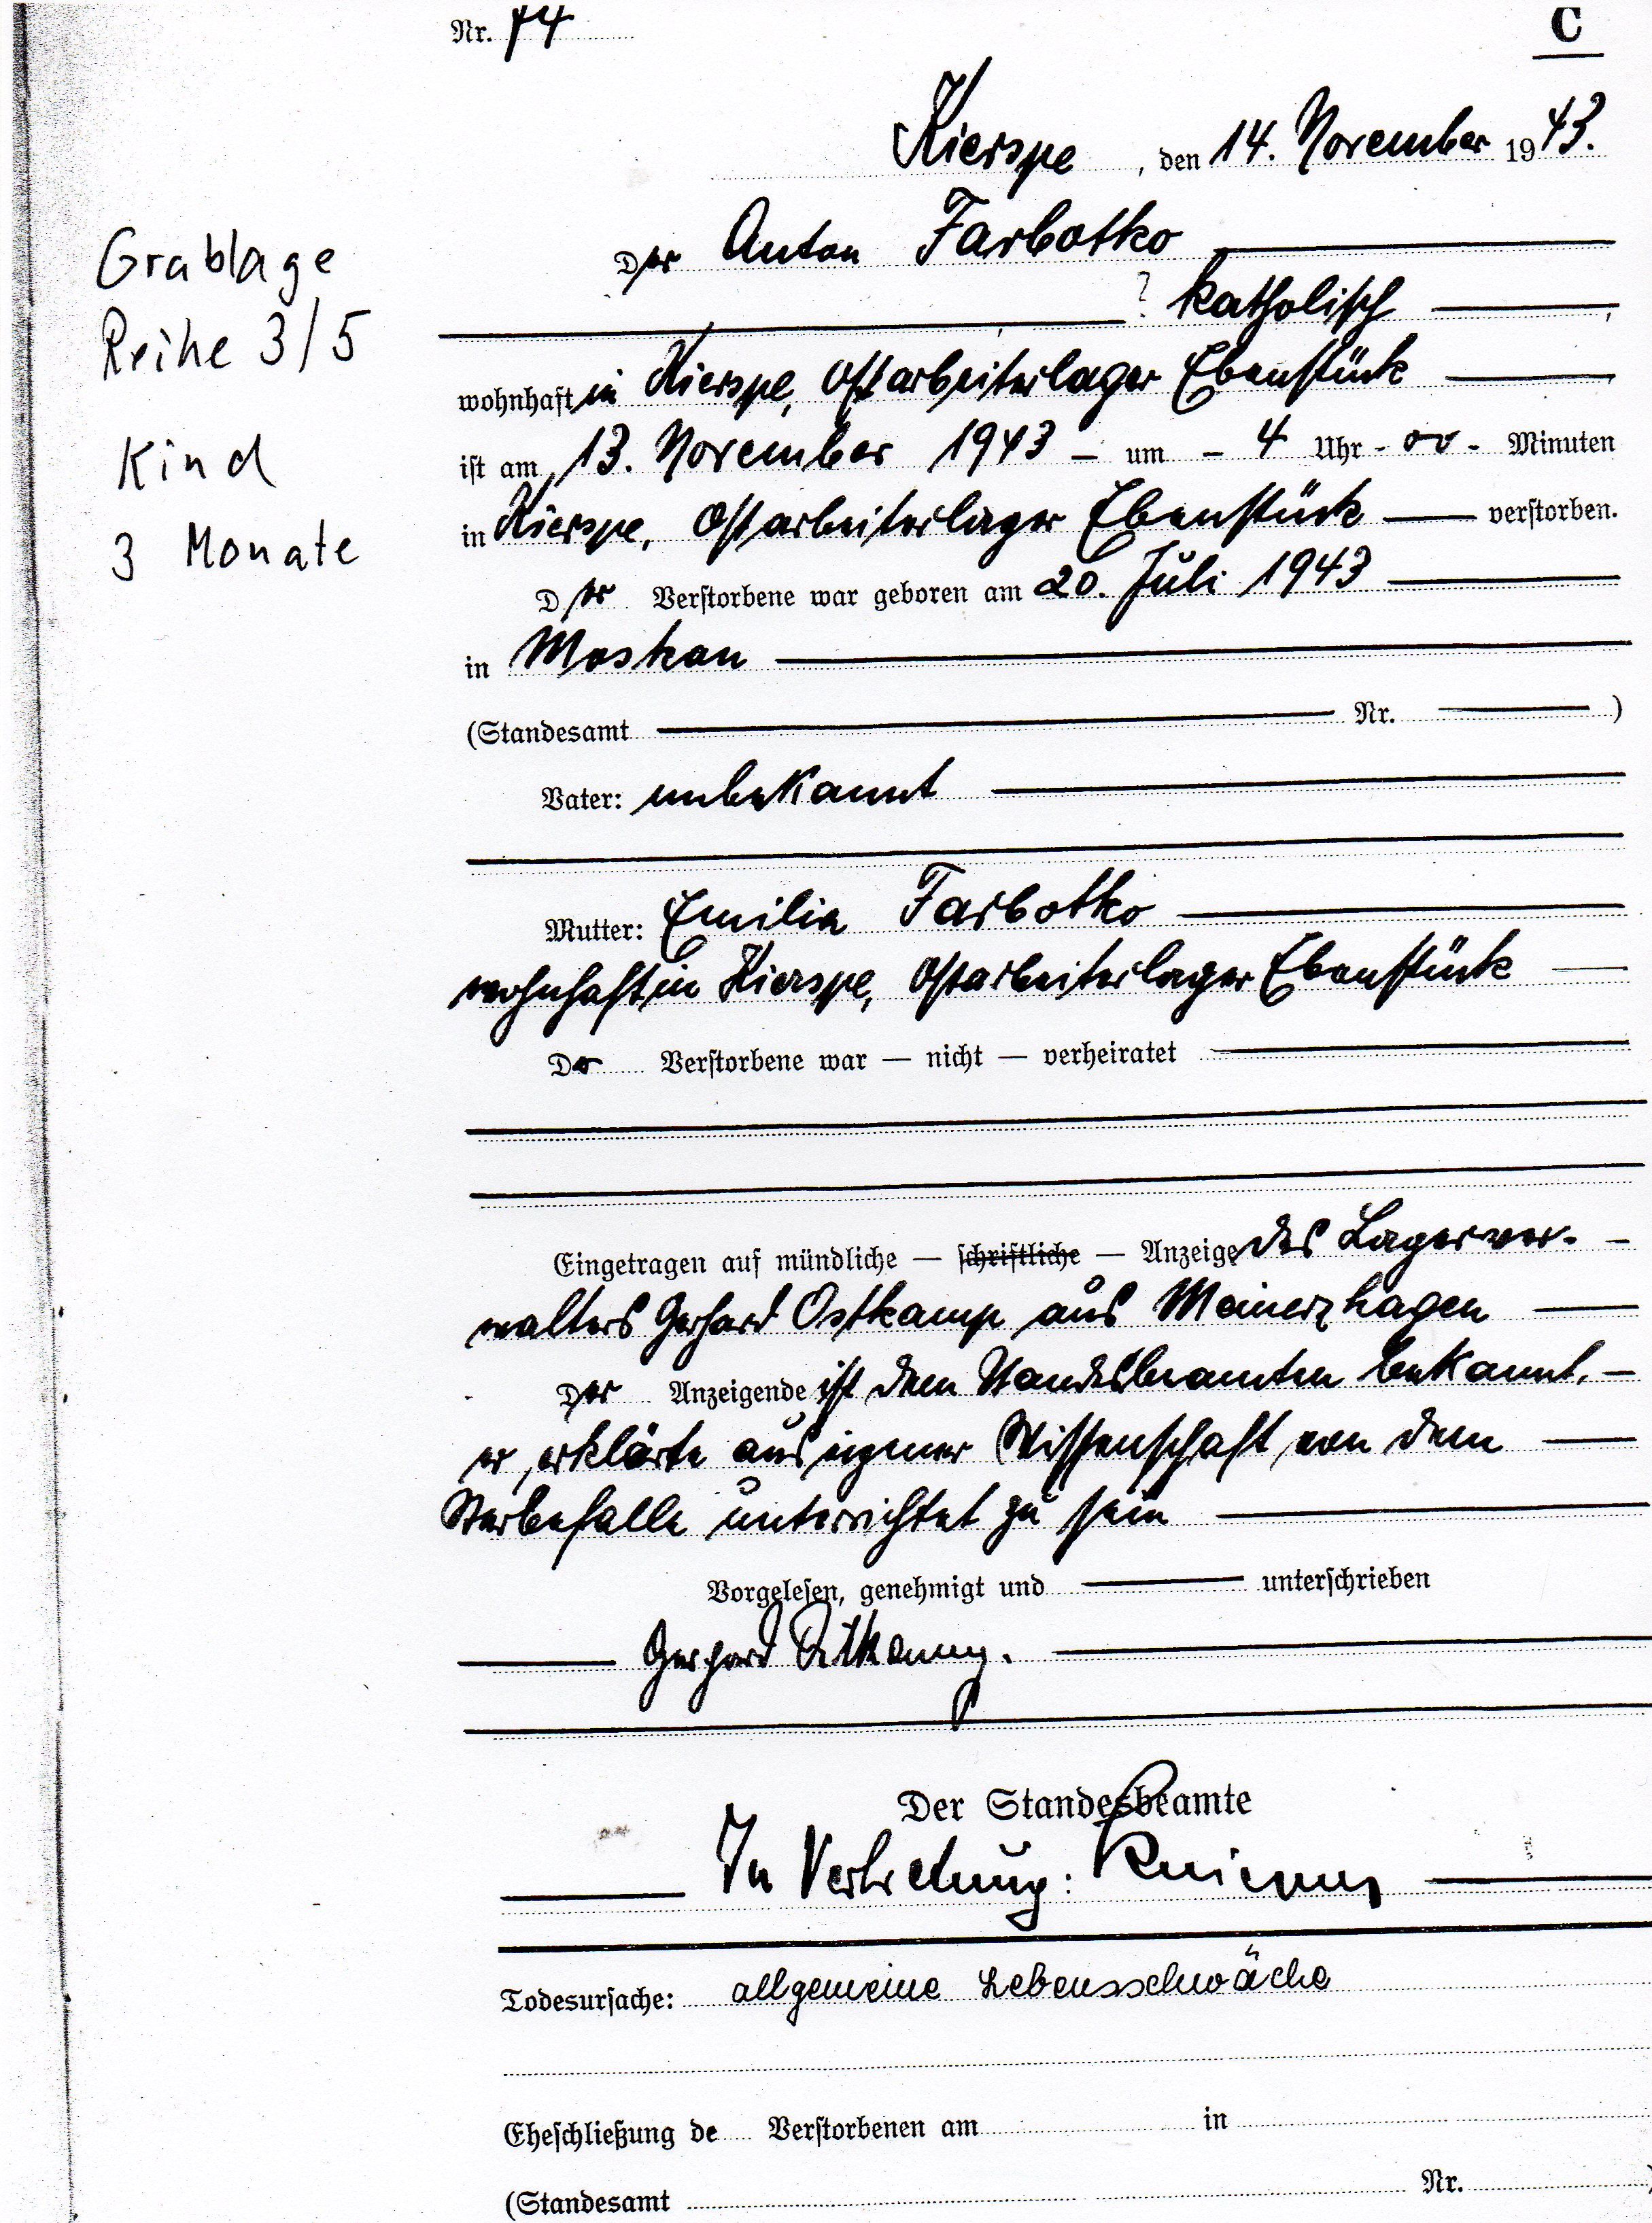 Nr. 74
C
Kierspe, den 14. November 1943.
Der Anton Farbotko
? katholisch,
wohnhaft in Kierspe, Ostarbeiterlager Ebenstück
ist am 13. November 1943 – um – 4 Uhr - 00 - Minuten
in Kierspe, Ostarbeiterlager Ebenstück verstorben.
Der Verstorbene war geboren am 20. Juli 1943
in Moskau
(Standesamt Nr. )
Vater: unbekannt
Mutter: Emilia Farbotko
wohnhaft in Kierspe, Ostarbeiterlager Ebenstück
Der Verstorbene war — nicht — verheiratet
Eingetragen auf mündliche — schriftliche — Anzeige des Lagerver-
walters Gerhard Ostkamp aus Meinerzhagen
Der Anzeigende ist dem Standesbeamten bekannt.
er, erklärte aus eigener Wissenschaft von dem
Sterbefalle unterrichtet zu sein
Vorgelesen, genehmigt und unterschrieben
Gerhard Ostkamp.
Der Standesbeamte
In Vertretung:
Todesursache: allgemeine Lebensschwäche
Eheschließung de Verstorbenen am in
(Standesamt Nr. )
Grablage
Reihe 3/5
Kind
3 Monate